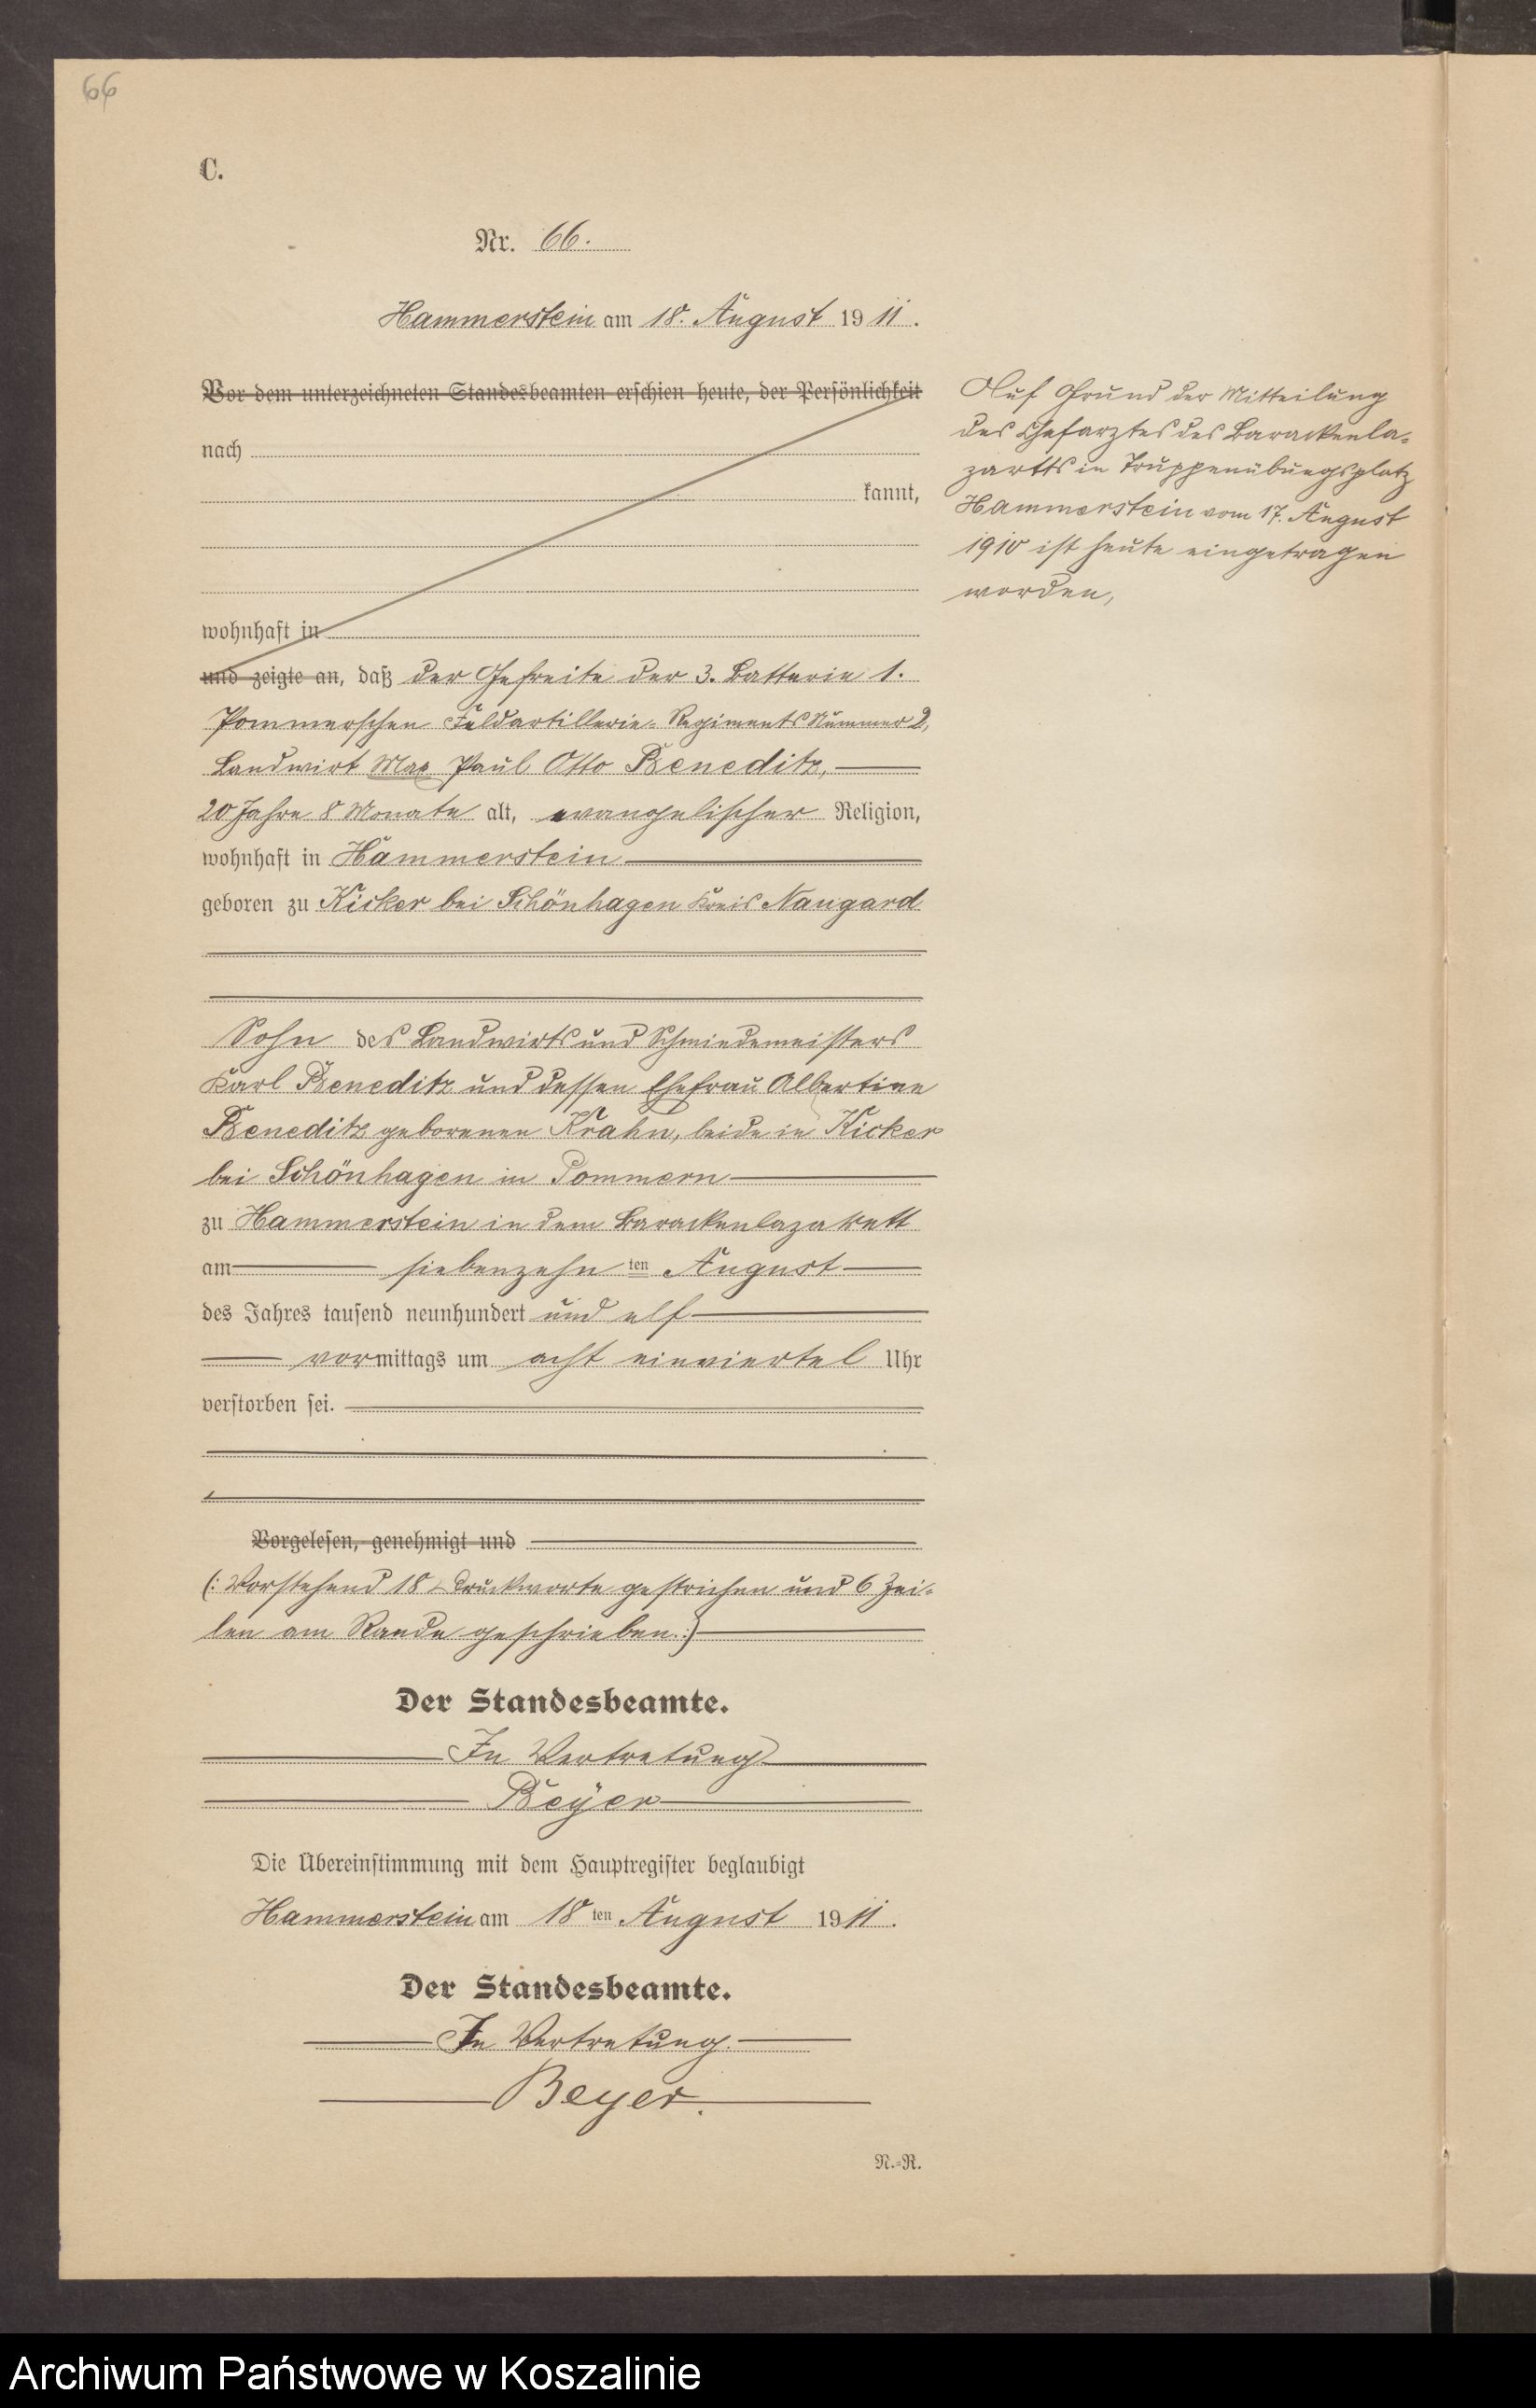 66
C.
Nr. 66.
Hammerstein am 18. August 1911.
Vor dem unterzeichneten Standesbeamten erschien heute, der Persönlichkeit
nach
kannt,
wohnhaft in
und zeigte an, daß der Gefreite der 3. Batterie 1.
Pommerschen Feldartillerie-Regiments Nummer 2,
Landwirt Max Paul Otto Beneditz,
20 Jahre 8 Monate alt, evangelischer Religion,
wohnhaft in Hammerstein
geboren zu Kicker bei Schönhagen Kreis Naugard
Sohn des Landwirts und Schmiedemeisters
Karl Beneditz und dessen Ehefrau Albertine
Beneditz geborenen Krahn, beide in Kicker
bei Schönhagen in Pommern
zu Hammerstein in dem Barackenlazarett
am siebenzehn ten August
des Jahres tausend neunhundert und elf
vormittags um acht einviertel Uhr
verstorben sei.
Vorgelesen, genehmigt und
(: Vorstehend 18 Druckworte gestrichen und 6 Zei-
len am Rande geschrieben. :)
Der Standesbeamte.
In Vertretung
Beyer
Die Übereinstimmung mit dem Hauptregister beglaubigt
Hammerstein am 18 ten August 1911.
Der Standesbeamte.
In Vertretung.
Beyer.
N.-R.
Auf Grund der Mitteilung
des Chefarztes des Barackenla-
zartts in Truppenübungsplatz
Hammerstein vom 17. August
1910 ist heute eingetragen
worden,
Archiwum Państwowe w Koszalinie